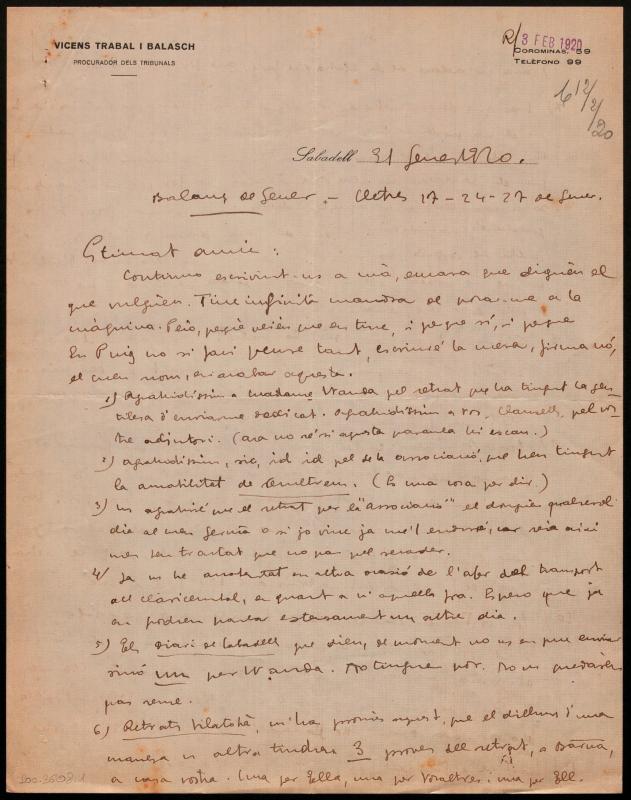 VICENS TRABAL I BALASCH
PROCURADOR DELS TRIBUNALS
R/ 3 FEB 1920
COROMINAS, 59
TELÈFONO 99
12/2/20
Sabadell 31 Gener 1920.
Balanç de Gener. - Lletres 17 - 24 - 27 de Gener.
Estimat amic:
Continuo escrivint-us a mà, encara que diguéu el
que vulguéu. Tinc infinita mandra de posar-me a la
màquina. Però, perquè veiéu que en tinc, i perquè sí, i perquè
En Puig no s'hi faci pensar tant, escriuré la meva, firmant,
el meu nom, en acabar aquesta.
1) Agraïdissim a madame Wanda pel retrat que ha tingut la gen-
tilesa d'enviarme dedicat. Agraïdissim a vos, Clausells, pel vos-
tre adjutori. (Ara no sé si aquesta paraula hi escau.)
2) Agraïdissim, sic, id id pel de la associació, que heu tingut
la amabilitat de remetrem. (Es una cosa per dir.)
3) us agrairé que el retrat per l'"Associació" el donguéu qualsevol
dia al meu germà o si jo vinc ja me'l enduré, car veig aixì
més ben tractat que no pas pel recader.
4) Ja us he contestat en altra ocasió de l'afer del transport
del claricembal, en quant a vi aquells fra. Espero que ja
en podrem parlar extensament un altre dia.
5) Els Diari de Sabadell que dieu, de moment no us en puc enviar
sinó un per Wanda. No tinguéu pór. No us quedaréu
pas sense.
6) Retrats Vilatobà, m'ha promès aquest, que el dilluns d'una
manera o altra tindreu 3 proves dell retrat, a Barna,
a casa vostra. Una per Ella, una per Vosaltres i una per Ell.